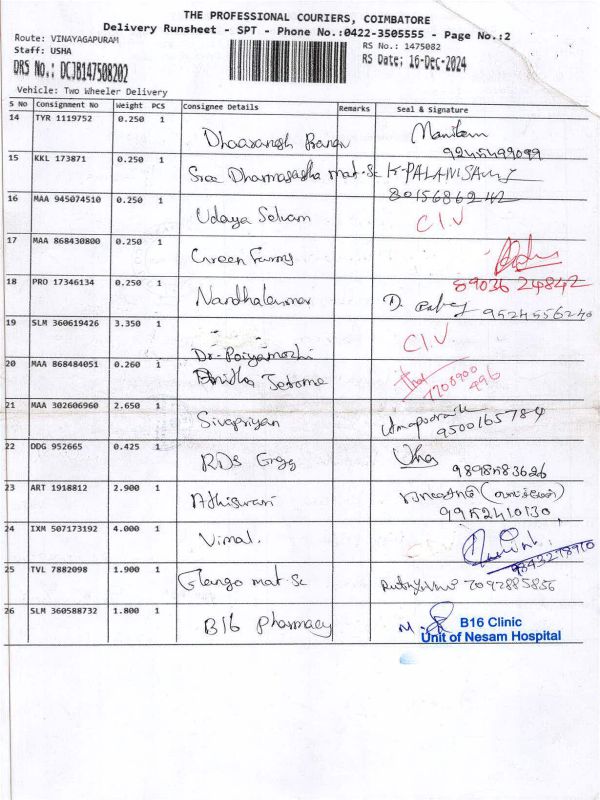 THE PROFESSIONAL COURIERS, COIMBATORE
Delivery Runsheet - SPT - Phone No.:0422-3505555 - Page No.:2
Route: VINAYAGAPURAM
Staff: USHA
RS No.: 1475082
DRS No.: DCJB147508202
RS Date: 16-Dec-2024
Vehicle: Two Wheeler Delivery
S No Consignment No Weight PCS Consignee Details Remarks Seal & Signature
14 TYR 1119752 0.250 1
9245499099
15 KKL 173871 0.250 1
Sree Dharmasastha mat.Sc K.PALANISAMY
8015686242
16 MAA 945074510 0.250 1
Udaya Selvam C I.V
17 MAA 868430800 0.250 1
Green Farms
18 PRO 17346134 0.250 1 89036 24842
Nandhakumar D. 9524556240
19 SLM 360619426 3.350 1
Dr. C I.V.
20 MAA 868484051 0.260 1
Anitha Jerome 7708900 496
21 MAA 302606960 2.650 1
Sivapriyan 9500165784
22 DDG 952665 0.425 1
RDS Engg Usha
9898583626
23 ART 1918812 2.900 1
Athiswari
9952410130
24 IXM 507173192 4.000 1
Vimal. 9843298910
25 TVL 7882098 1.900 1
Elango mat.Sc 7092885856
26 SLM 360588732 1.800 1
B16 Pharmacy B16 Clinic
Unit of Nesam Hospital